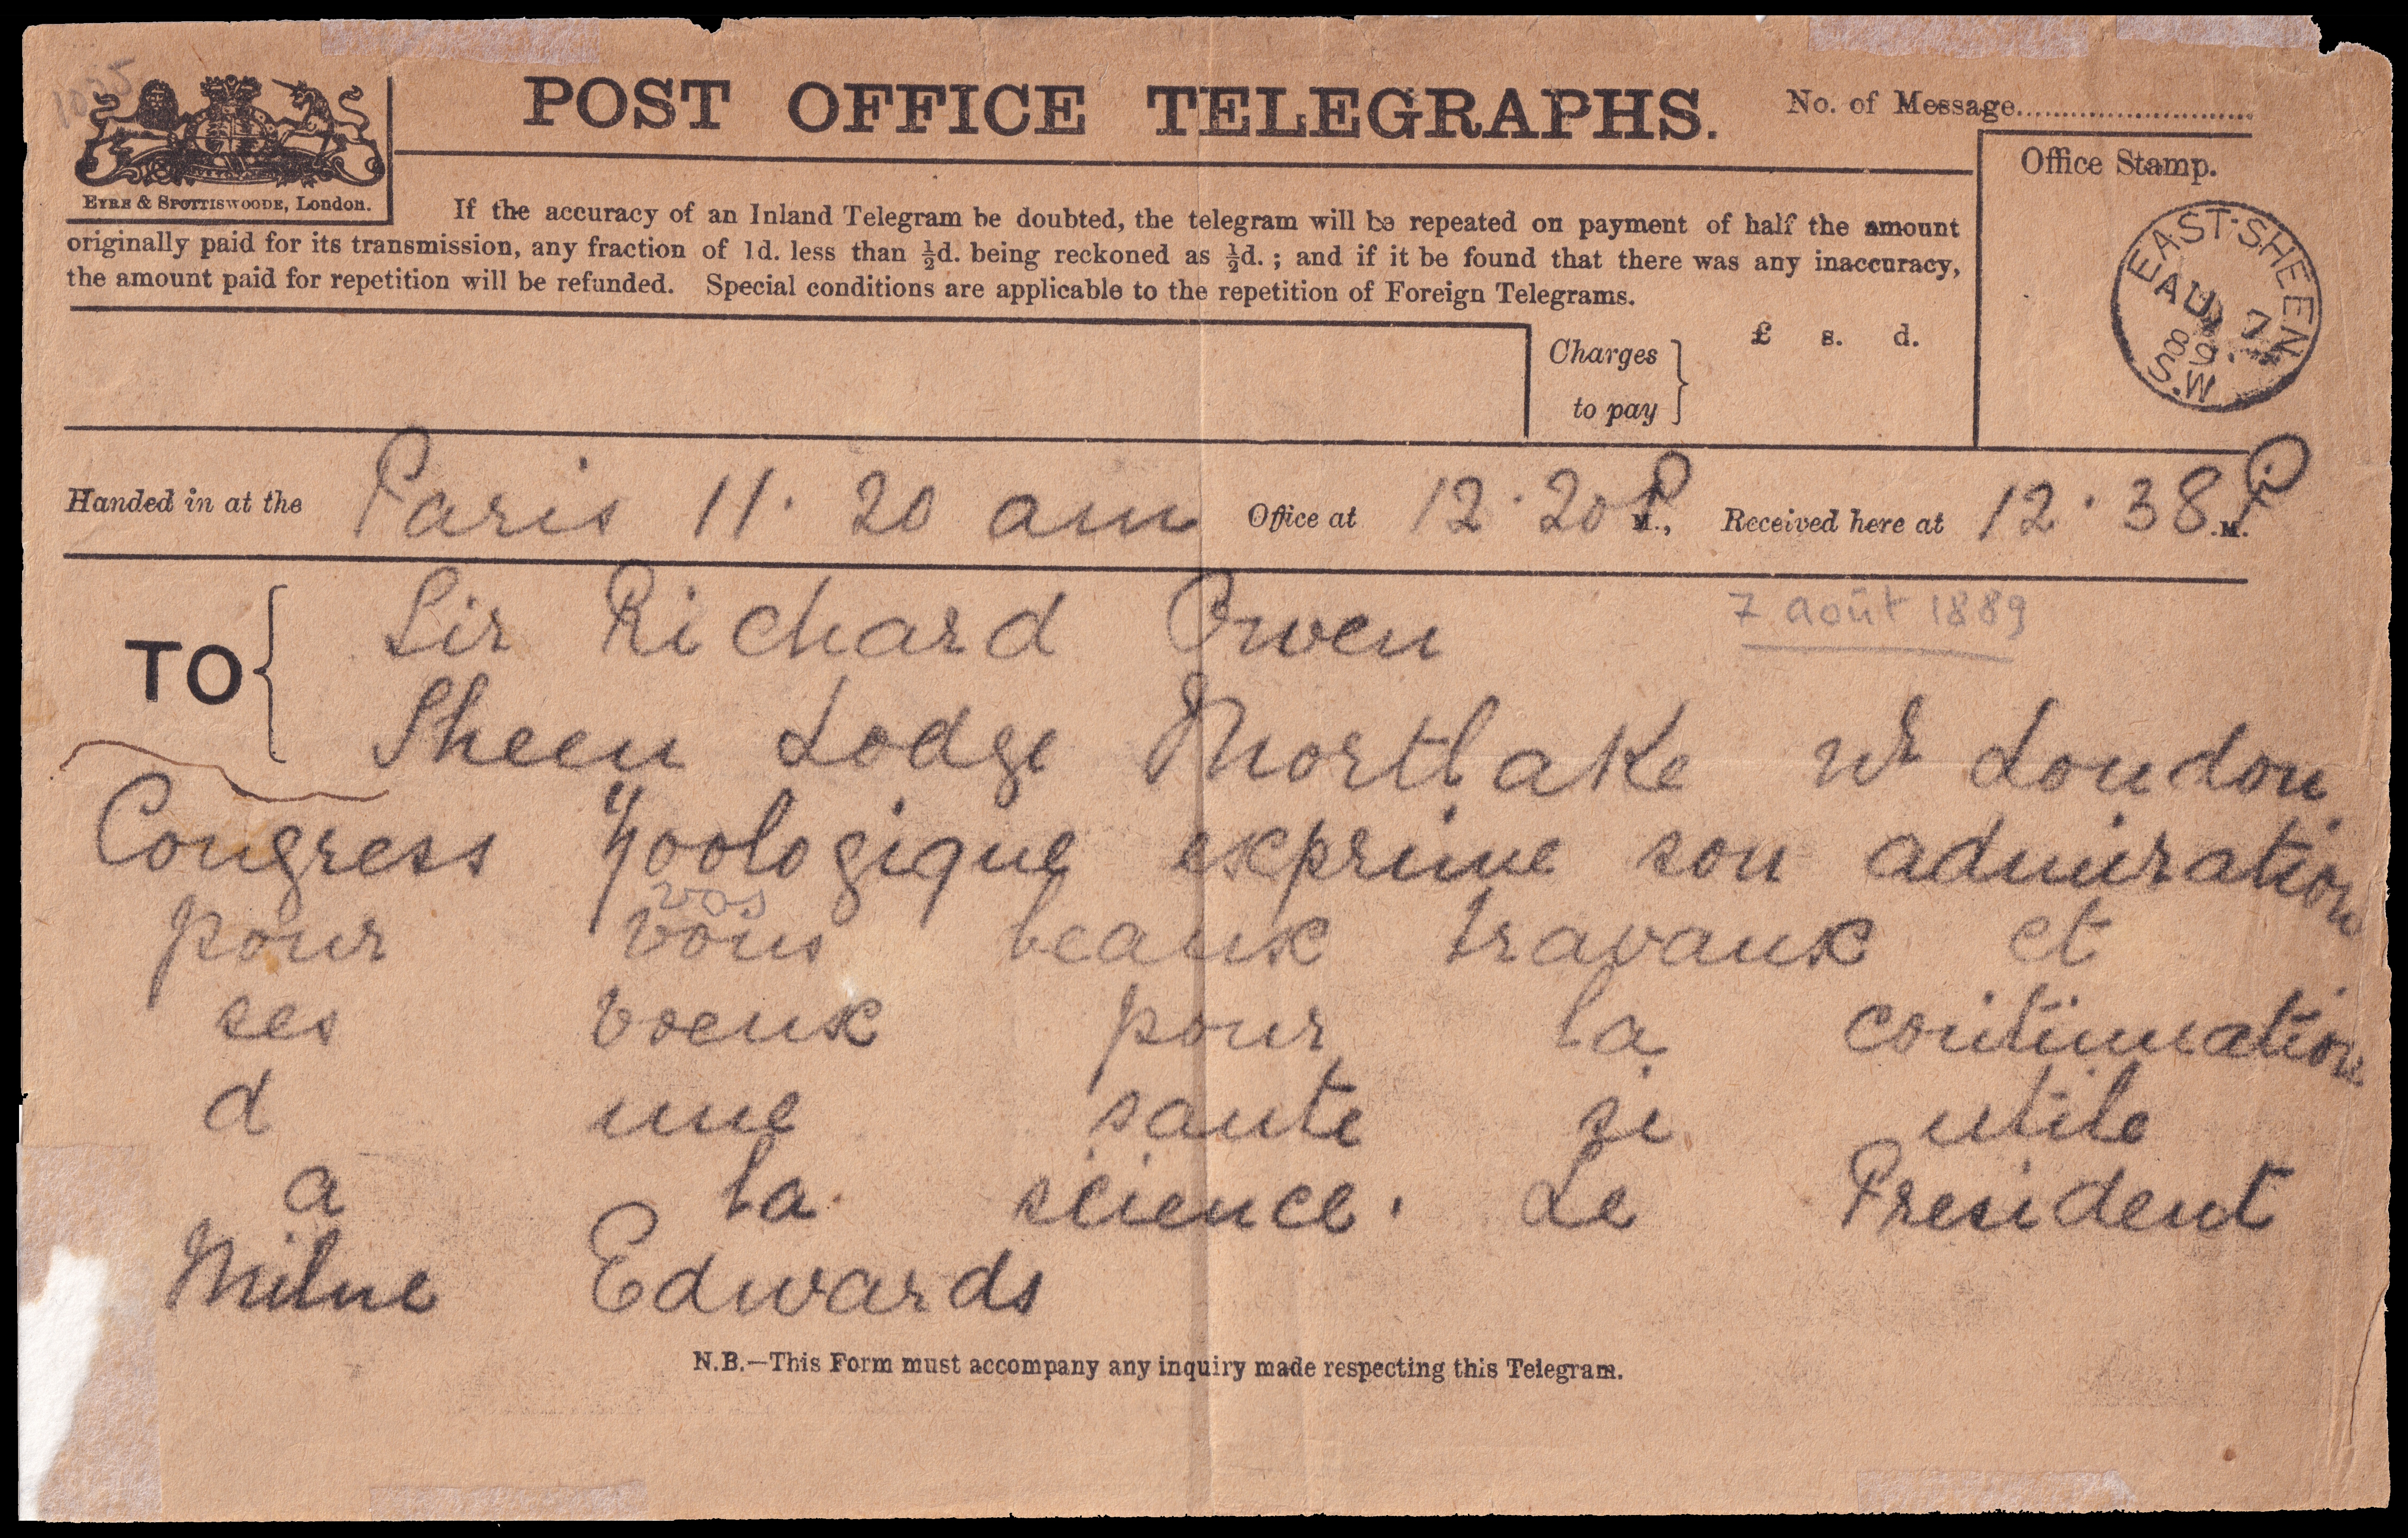 POST OFFICE TELEGRAPHS.
No. of Message
EYRE & SPOTTISWOODE, London.
Office Stamp.
EAST-SHEEN
AU 7
89
S.W
If the accuracy of an Inland Telegram be doubted, the telegram will be repeated on payment of half the amount
originally paid for its transmission, any fraction of 1d. less than ½d. being reckoned as ½d. ; and if it be found that there was any inaccuracy,
the amount paid for repetition will be refunded. Special conditions are applicable to the repetition of Foreign Telegrams.
Charges to pay } £ s. d.
Handed in at the Paris 11.20 am Office at 12.20 P M., Received here at 12.38 P .M.
TO { Sir Richard Owen
7 août 1889
Sheen Lodge Mortlake London
Congress Zoologique exprime son admiration
vos
pour vous beaux travaux et
ses voeux pour la continuation
d une sante si utile
a la science. Le President
Milne Edwards
N.B.—This Form must accompany any inquiry made respecting this Telegram.